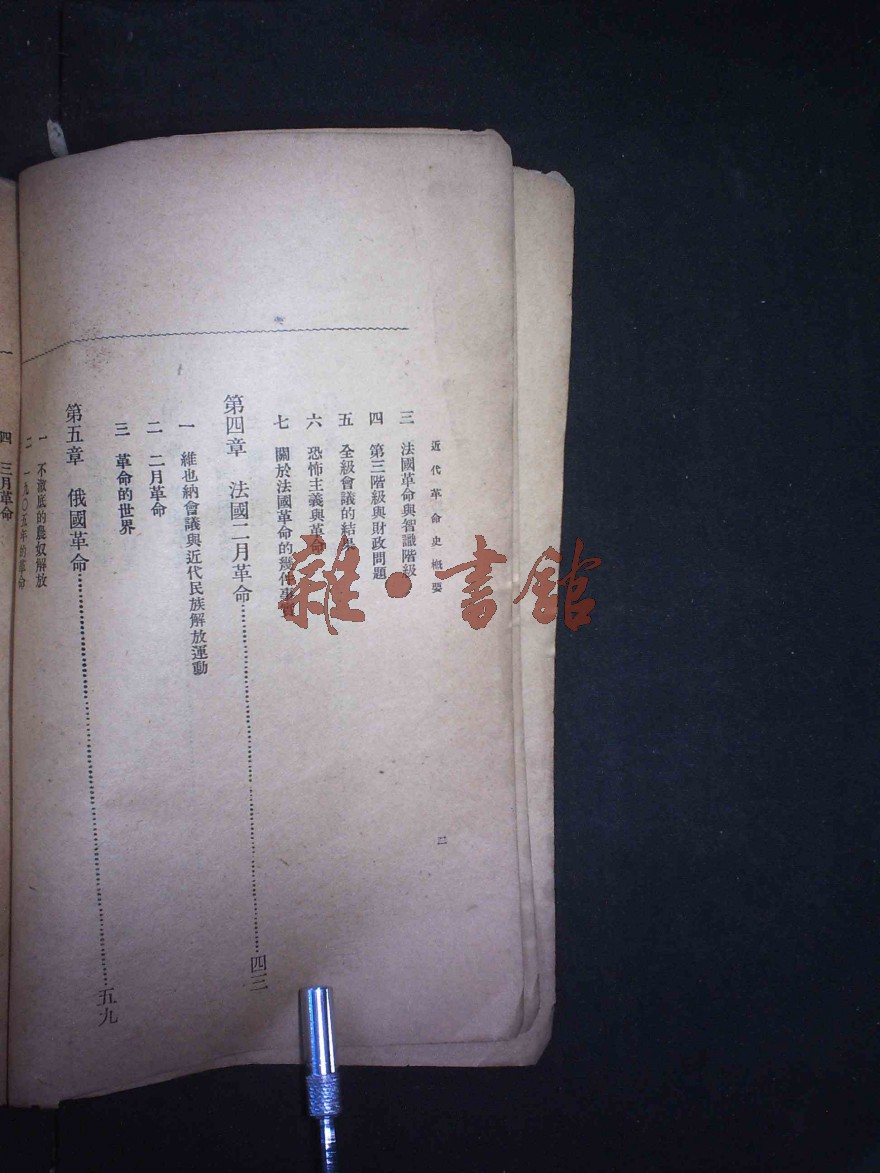 近代革命史概要
二
三 法國革命與智識階級
四 第三階級與財政問題
五 全級會議的結果
六 恐怖主義與革命
七 關於法國革命的幾件事實
第四章 法國二月革命 四三
一 維也納會議與近代民族解放運動
二 二月革命
三 革命的世界
第五章 俄國革命 五九
一 不澈底的農奴解放
二 一九〇五年的革命
四 三月革命
雜·書館